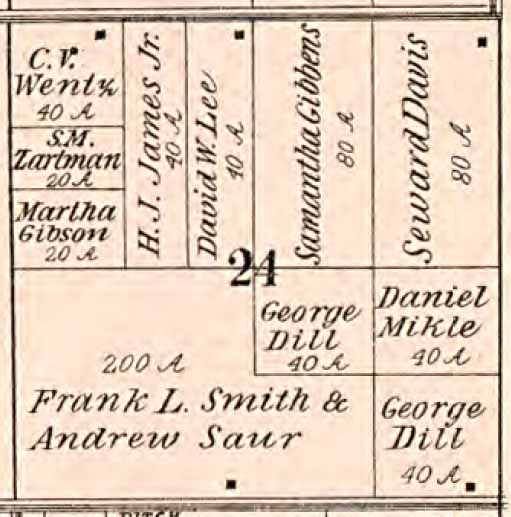 C. V.
Wentz
40 A
S.M.
Zartman
20 A
Martha
Gibson
20 A
H. J. James Jr.
40 A
David W. Lee
40 A
Samantha Gibbens
80 A
Seward Davis
80 A
24
George
Dill
40 A
Daniel
Mikle
40 A
200 A
Frank L. Smith &
Andrew Saur
George
Dill
40 A.
DITCH